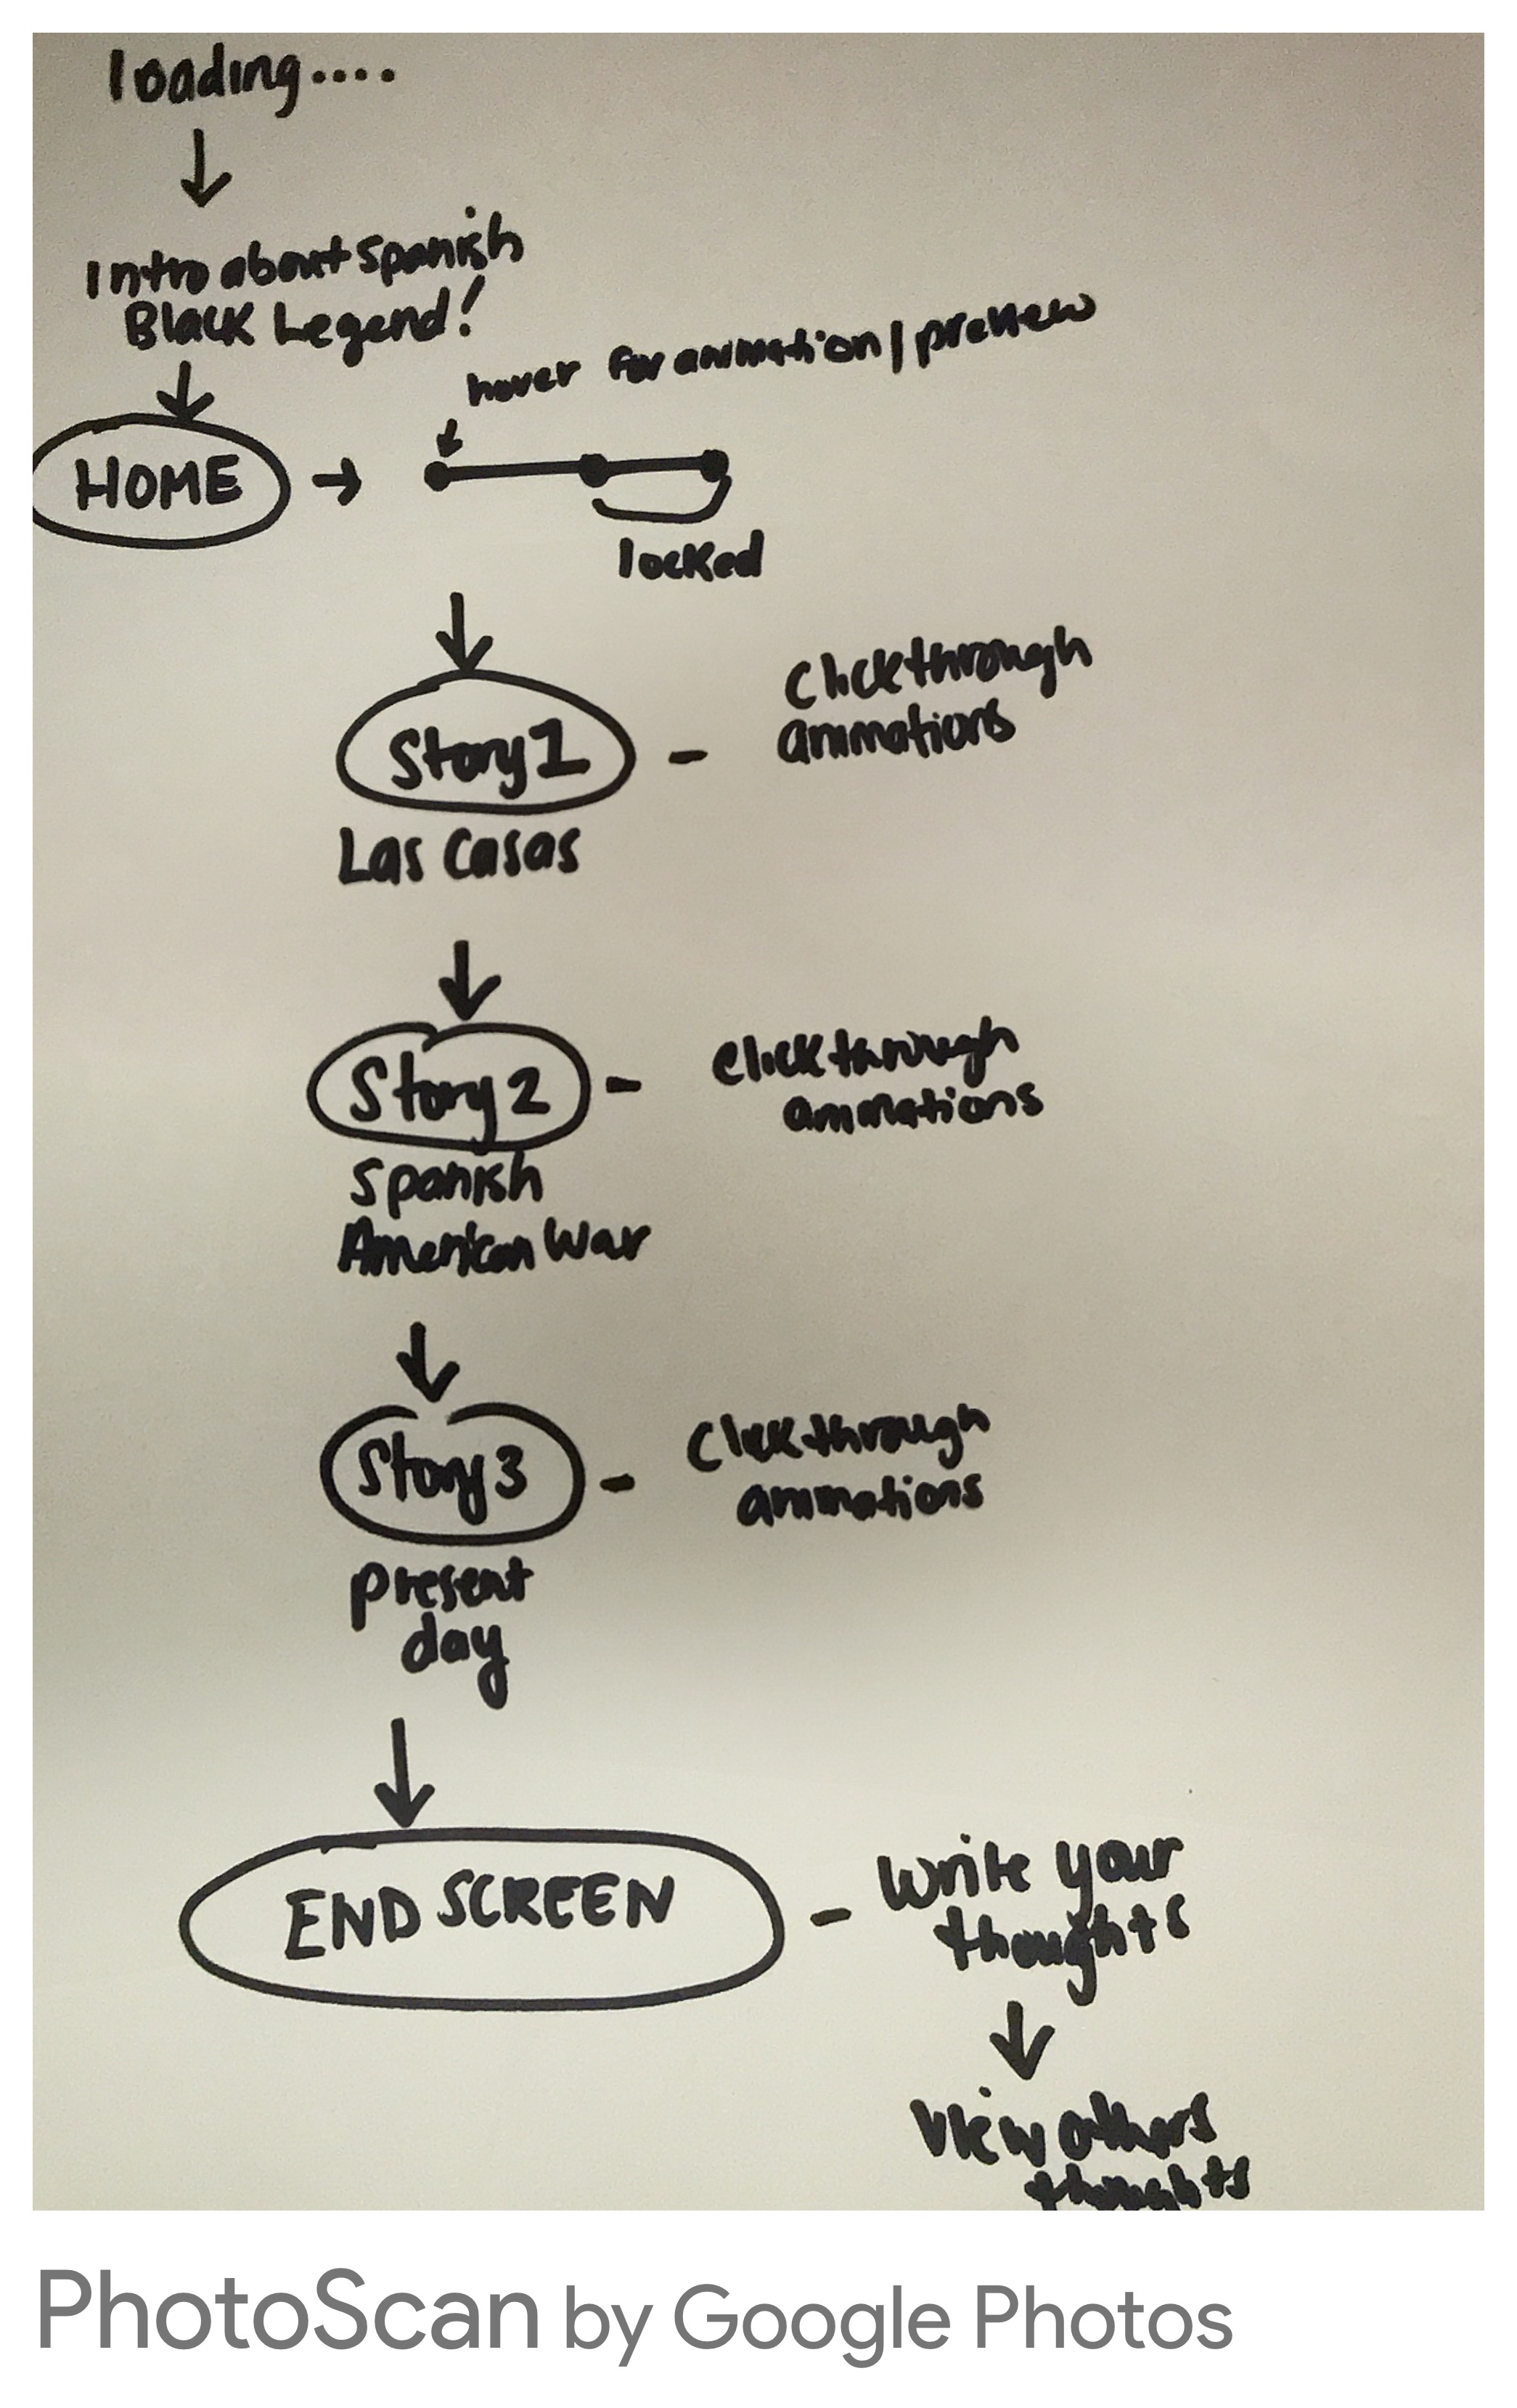 loading....
Intro about Spanish
Black Legend!
hover for animation/preview
HOME
locked
Story 1
Clickthrough
animations
Las Casas
Story 2
Clickthrough
animations
Spanish
American War
Story 3
Clickthrough
animations
present
day
END SCREEN
Write your
thoughts
View others
thoughts
PhotoScan by Google Photos